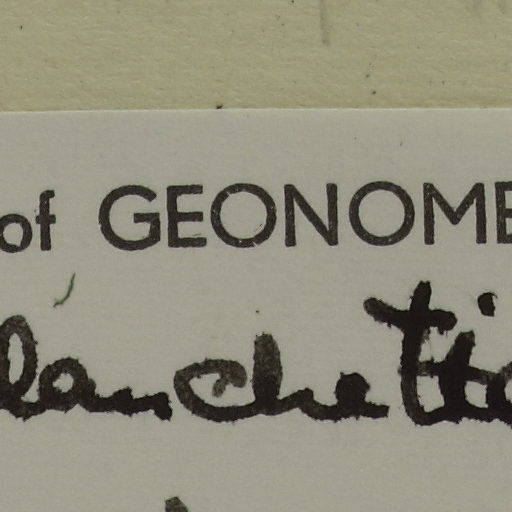 of GEONOME
lanchetia